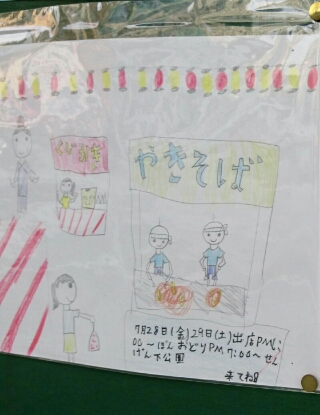 くじ引き
やきそば
7月28日(金)29日(土)出店PM1:
00〜ぼんおどりPM7:00〜せん
げん下公園
来てね8